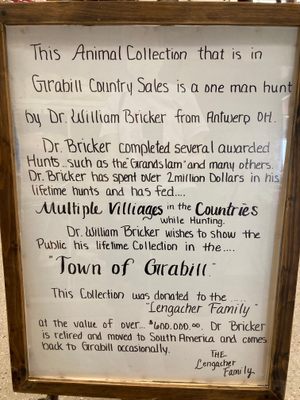 This Animal Collection that is in
Grabill Country Sales is a one man hunt
by Dr. William Bricker from Antwerp OH.
Dr. Bricker completed several auwarded
Hunts...such as the "Grandslam" and many others.
Dr. Bricker has spent over 2 million Dollars in his
lifetime hunts and has fed....
Multiple Villiages in the Countries
while Hunting.
Dr. William Bricker wishes to show the
Public his lifetime Collection in the....
"Town of Grabill"
This Collection was donated to the.....
"Lengacher Family"
at the value of over... $600.000.00. Dr Bricker
is retired and moved to South America and comes
back to Grabill occasionally.
THE
Lengacher
Family